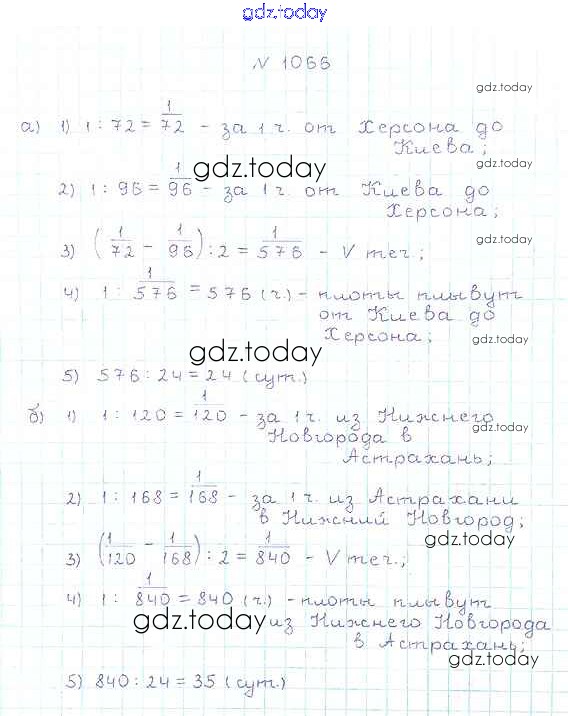 gdz.today
№ 1066
gdz.today
а) 1) 1 : 72 = 1/72 - за 1 ч. от Херсона до
Киева;
gdz.today
gdz.today
2) 1 : 96 = 1/96 - за 1 ч. от Киева до
gdz.today
Херсона;
3) (1/72 - 1/96) : 2 = 1/576 - V теч.;
gdz.today
4) 1 : 1/576 = 576 (ч.) - плоты плывут
от Киева до
Херсона;
gdz.today
gdz.today
5) 576 : 24 = 24 (сут.)
б) 1) 1 : 120 = 1/120 - за 1 ч. из Нижнего
gdz.today
Новгорода в
Астрахань;
2) 1 : 168 = 1/168 - за 1 ч. из Астрахани
в Нижний Новгород;
gdz.today
3) (1/120 - 1/168) : 2 = 1/840 - V теч.;
4) 1 : 1/840 = 840 (ч.) - плоты плывут
gdz.today
из Нижнего Новгорода
в Астрахань;
gdz.today
5) 840 : 24 = 35 (сут.)